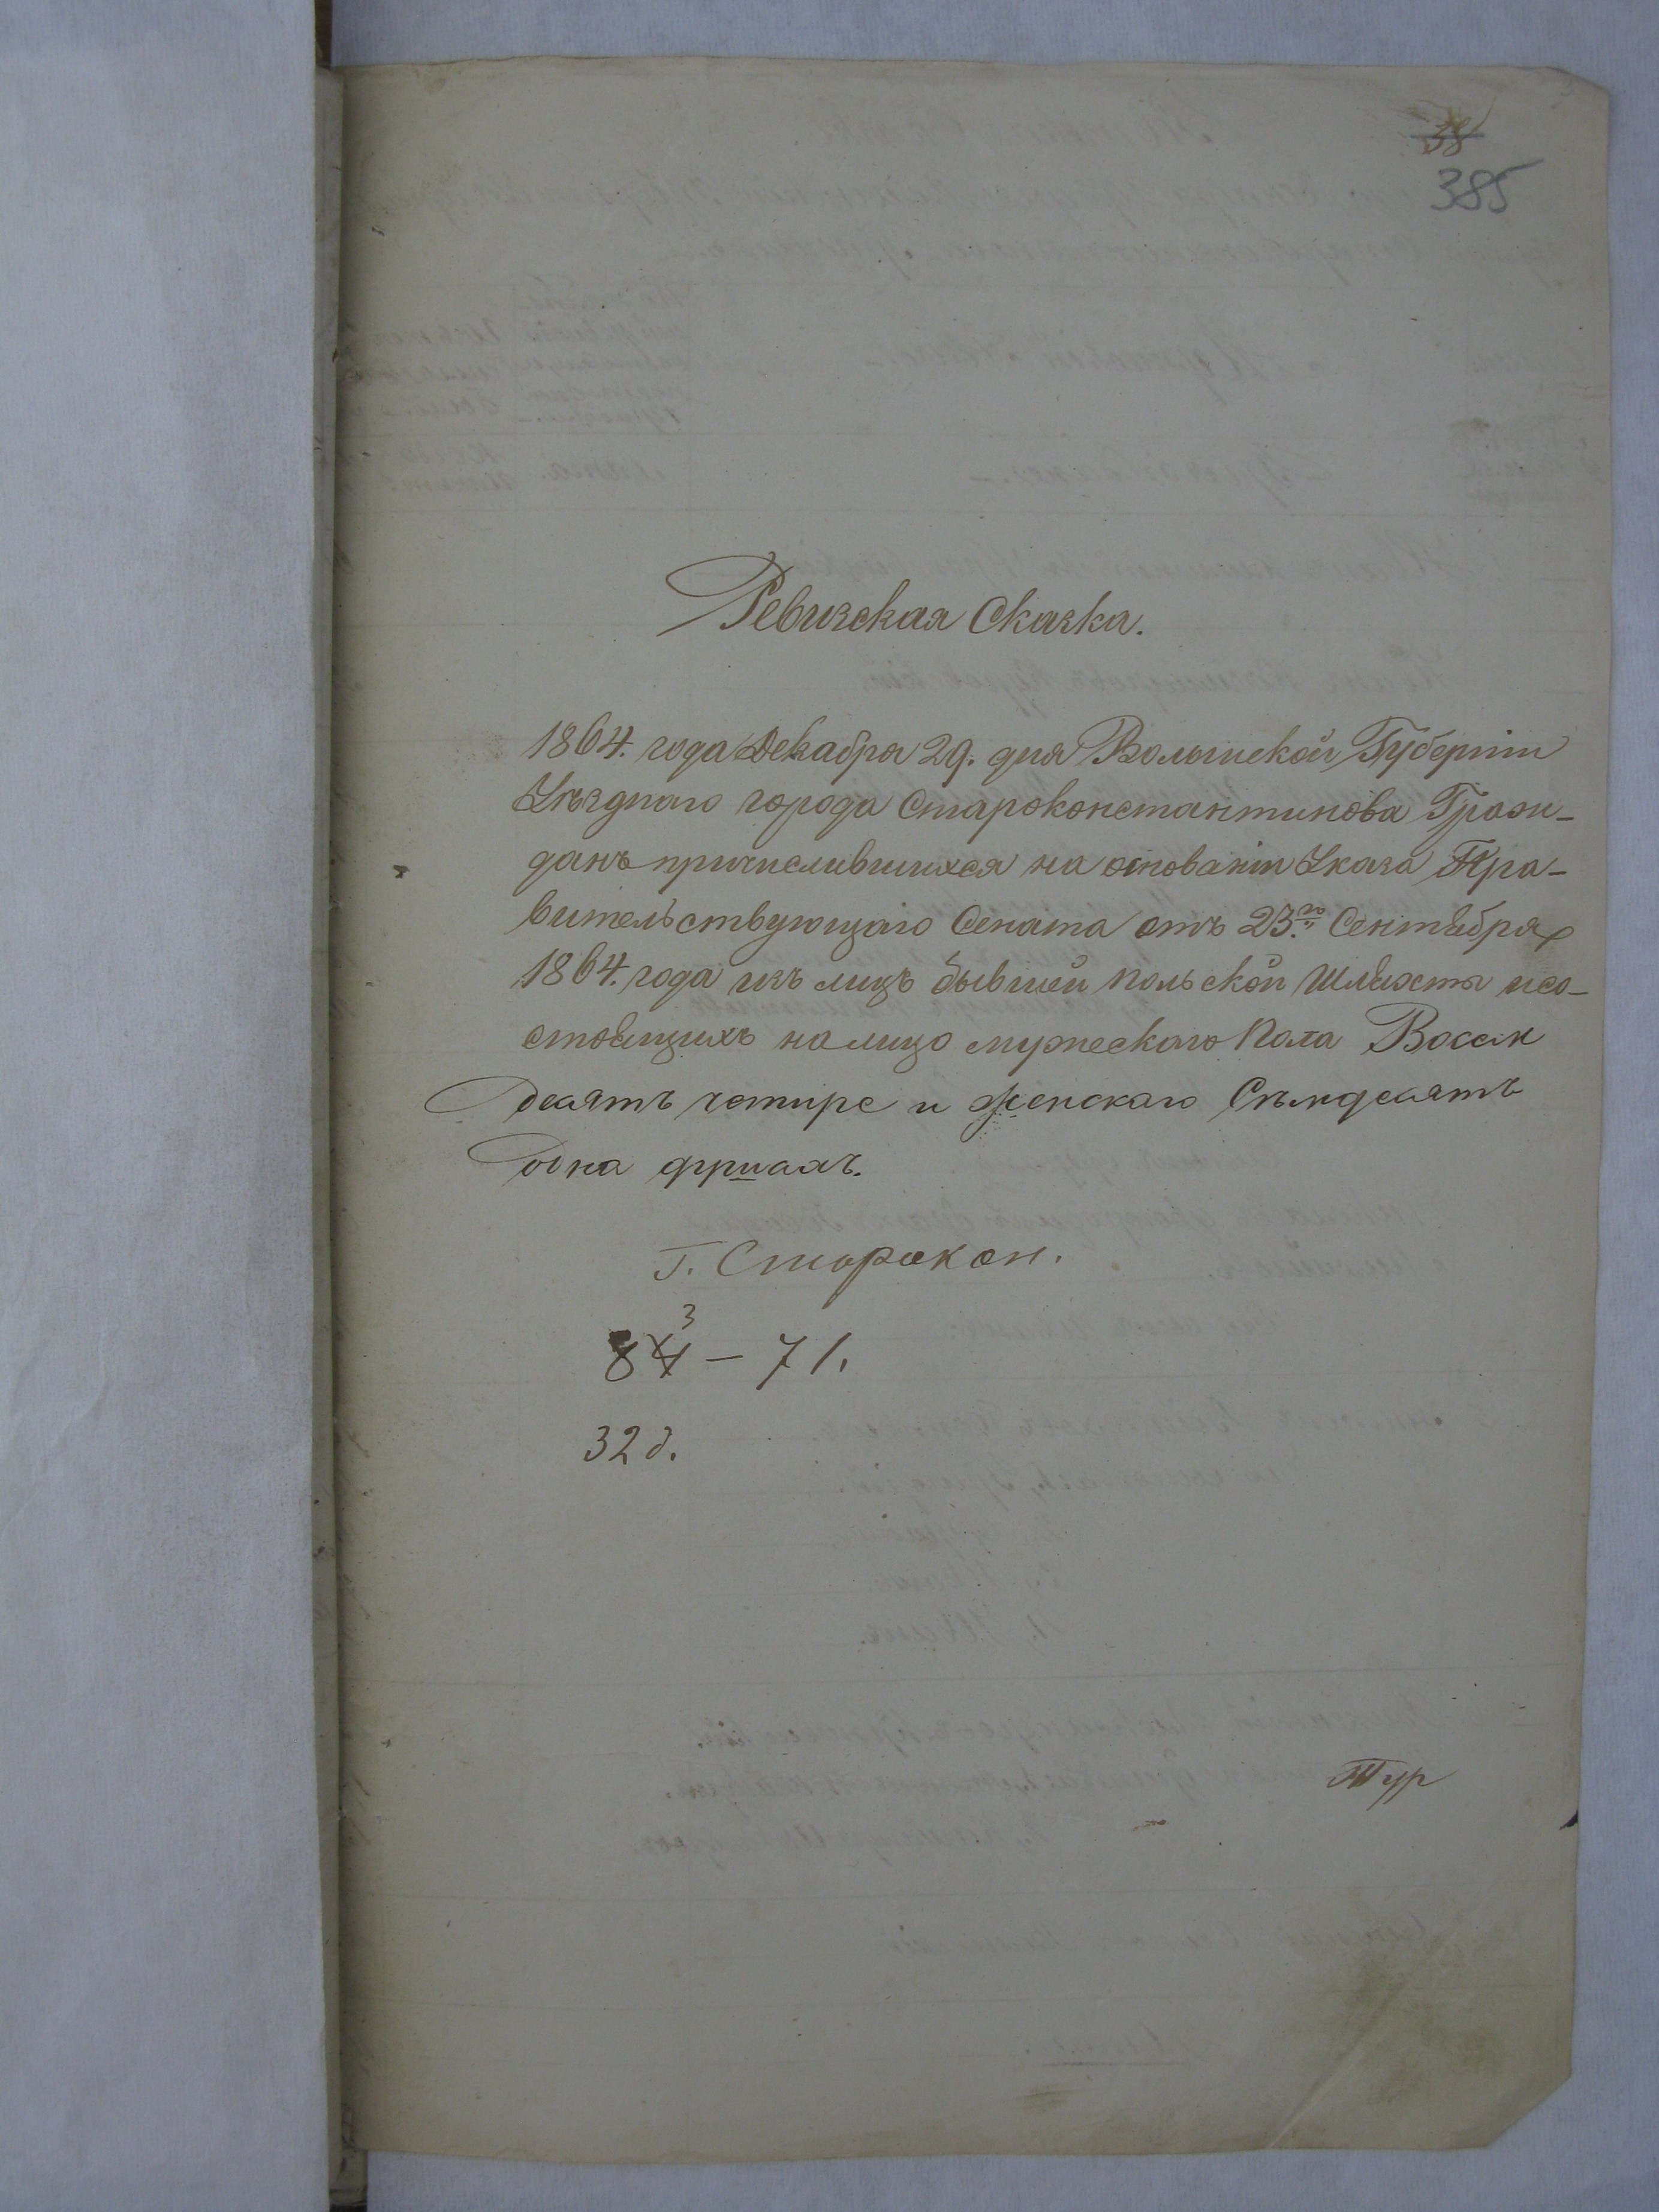 38
385
Ревизская Сказка.
1864. года Декабря 29. дня Волынской Губерніи
Уѣзднаго города Староконстантинова Граж-
данъ причислившихся на основаніи Указа Пра-
вительствующаго Сената отъ 23.го Сентября
1864. года изъ лицъ бывшей польской Шляхты и со-
стоящихъ на лицо мужескаго Пола Восем
десятъ четире и женскаго Съмдесятъ
одна душахъ.
Г. Старокон.
3
84 – 71.
32 д.
Тур